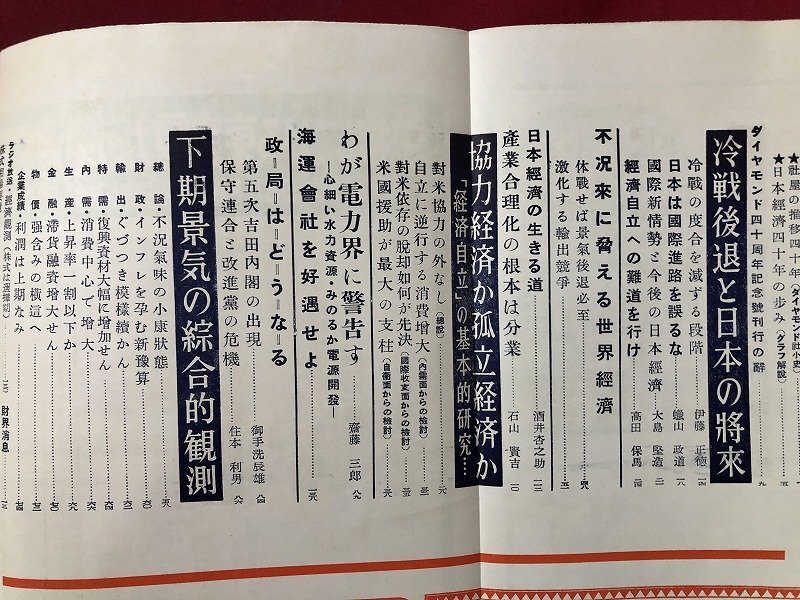 ★社屋の推移四十年(ダイヤモンド社小史)
★日本経済四十年の歩み(グラフ解説)
ダイヤモンド四十周年記念號刊行の辭
冷戦後退と日本の將來
冷戦の度合を減する段階 伊藤正徳
日本は國際進路を誤るな 蠟山政道
國際新情勢と今後の日本經濟 大島堅造
經濟自立への難道を行け 高田保馬
不況來に脅える世界經濟
休戦せば景氣後退必至
激化する輸出競爭
日本經濟の生きる道 酒井杏之助
産業合理化の根本は分業 石山賢吉
協力経済か孤立経済か
「経済自立」の基本的研究
對米協力の外なし(總說)
自立に逆行する消費增大(内需面からの檢討)
對米依存の脱却如何が先決(國際收支面からの檢討)
米國援助が最大の支柱(自衞面からの檢討)
わが電力界に警告す 齋藤三郎
―心細い水力資源・みのるか電源開發―
海運會社を好遇せよ
政＝局＝は＝ど＝う＝な＝る
第五次吉田内閣の出現 御手洗辰雄
保守連合と改進黨の危機 住本利男
下期景気の綜合的観測
總論・不況氣味の小康狀態
財政・インフレを孕む新豫算
輸出・ぐづつき模樣續かん
特需・復興資材大幅に增加せん
内需・消費中心で增大
生産・上昇率一割以下か
金融・滯貨融資增大せん
物價・强含みの横這へ
企業成績・利潤は上期なみ
ラジオ放送・經濟觀測(株式は選擇期)
財界消息